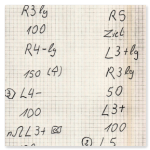 R3lg
100
R4-lg
150 (4)
② L4-
100
nΩL3+
R5
Zieh
L3+lg
R3lg
50
L3+
100
③ L5